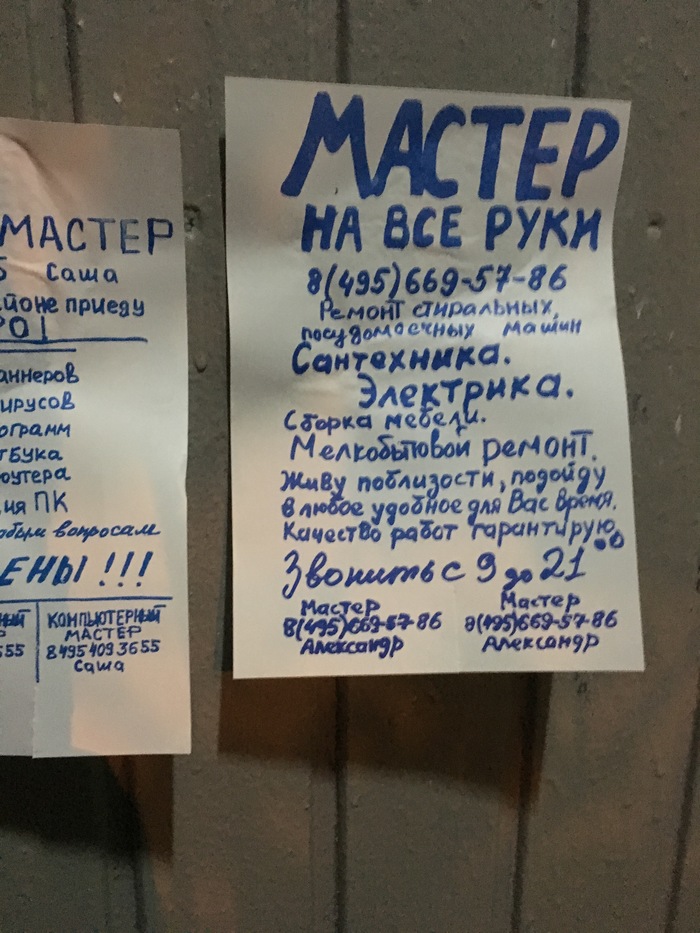 МАСТЕР
Саша
приеду
ПК
вопросам
!!!
КОМПЬЮТЕРНЫЙ
МАСТЕР
8495 409 3655
Саша
МАСТЕР
НА ВСЕ РУКИ
8(495)669-57-86
Ремонт стиральных,
посудомоечных машин
Сантехника.
Электрика.
Сборка мебели.
Мелкобытовой ремонт.
Живу поблизости, подойду
в любое удобное для Вас время.
Качество работ гарантирую.
Звонить с 9 до 21 00
Мастер
8(495)669-57-86
Александр
Мастер
8(495)669-57-86
Александр